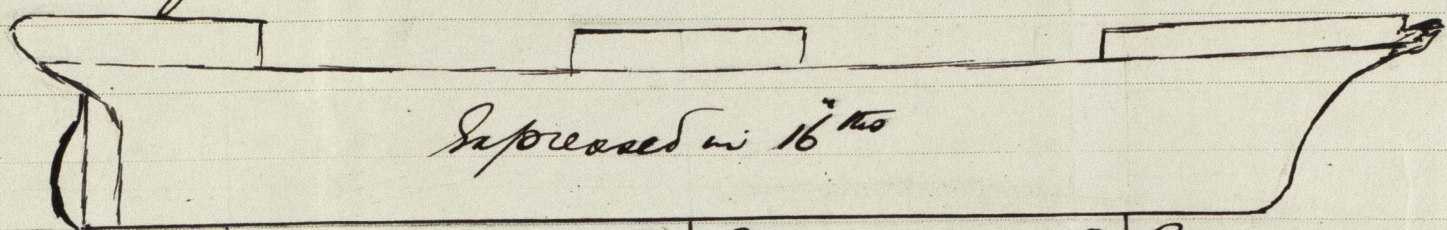 Expressed in 16ths